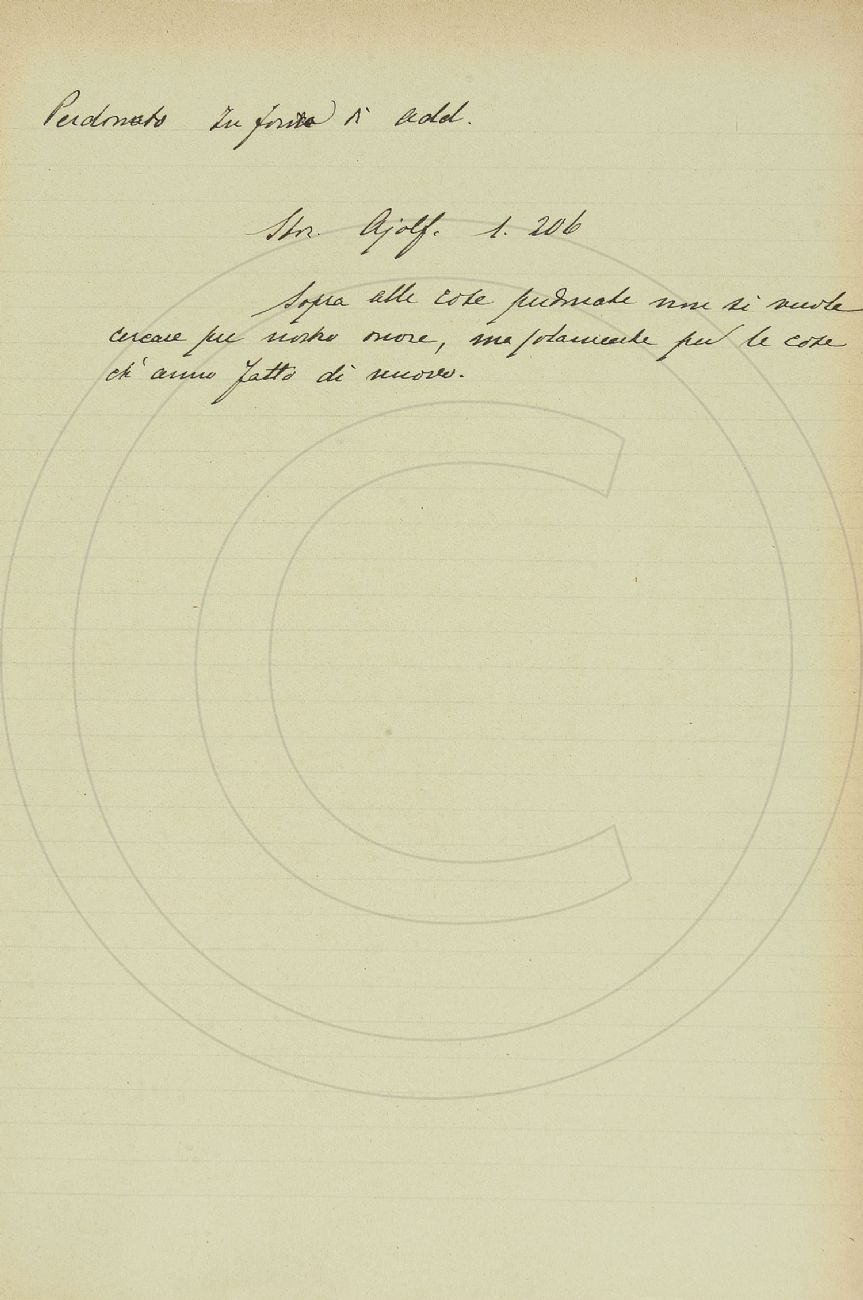 Perdonato In forza di add.
Stor. Ajolf. 1. 206
Sopra alle cose perdonate non si vuole
cercare per nostro onore, ma solamente per le cose
ch' anno fatto di nuovo.